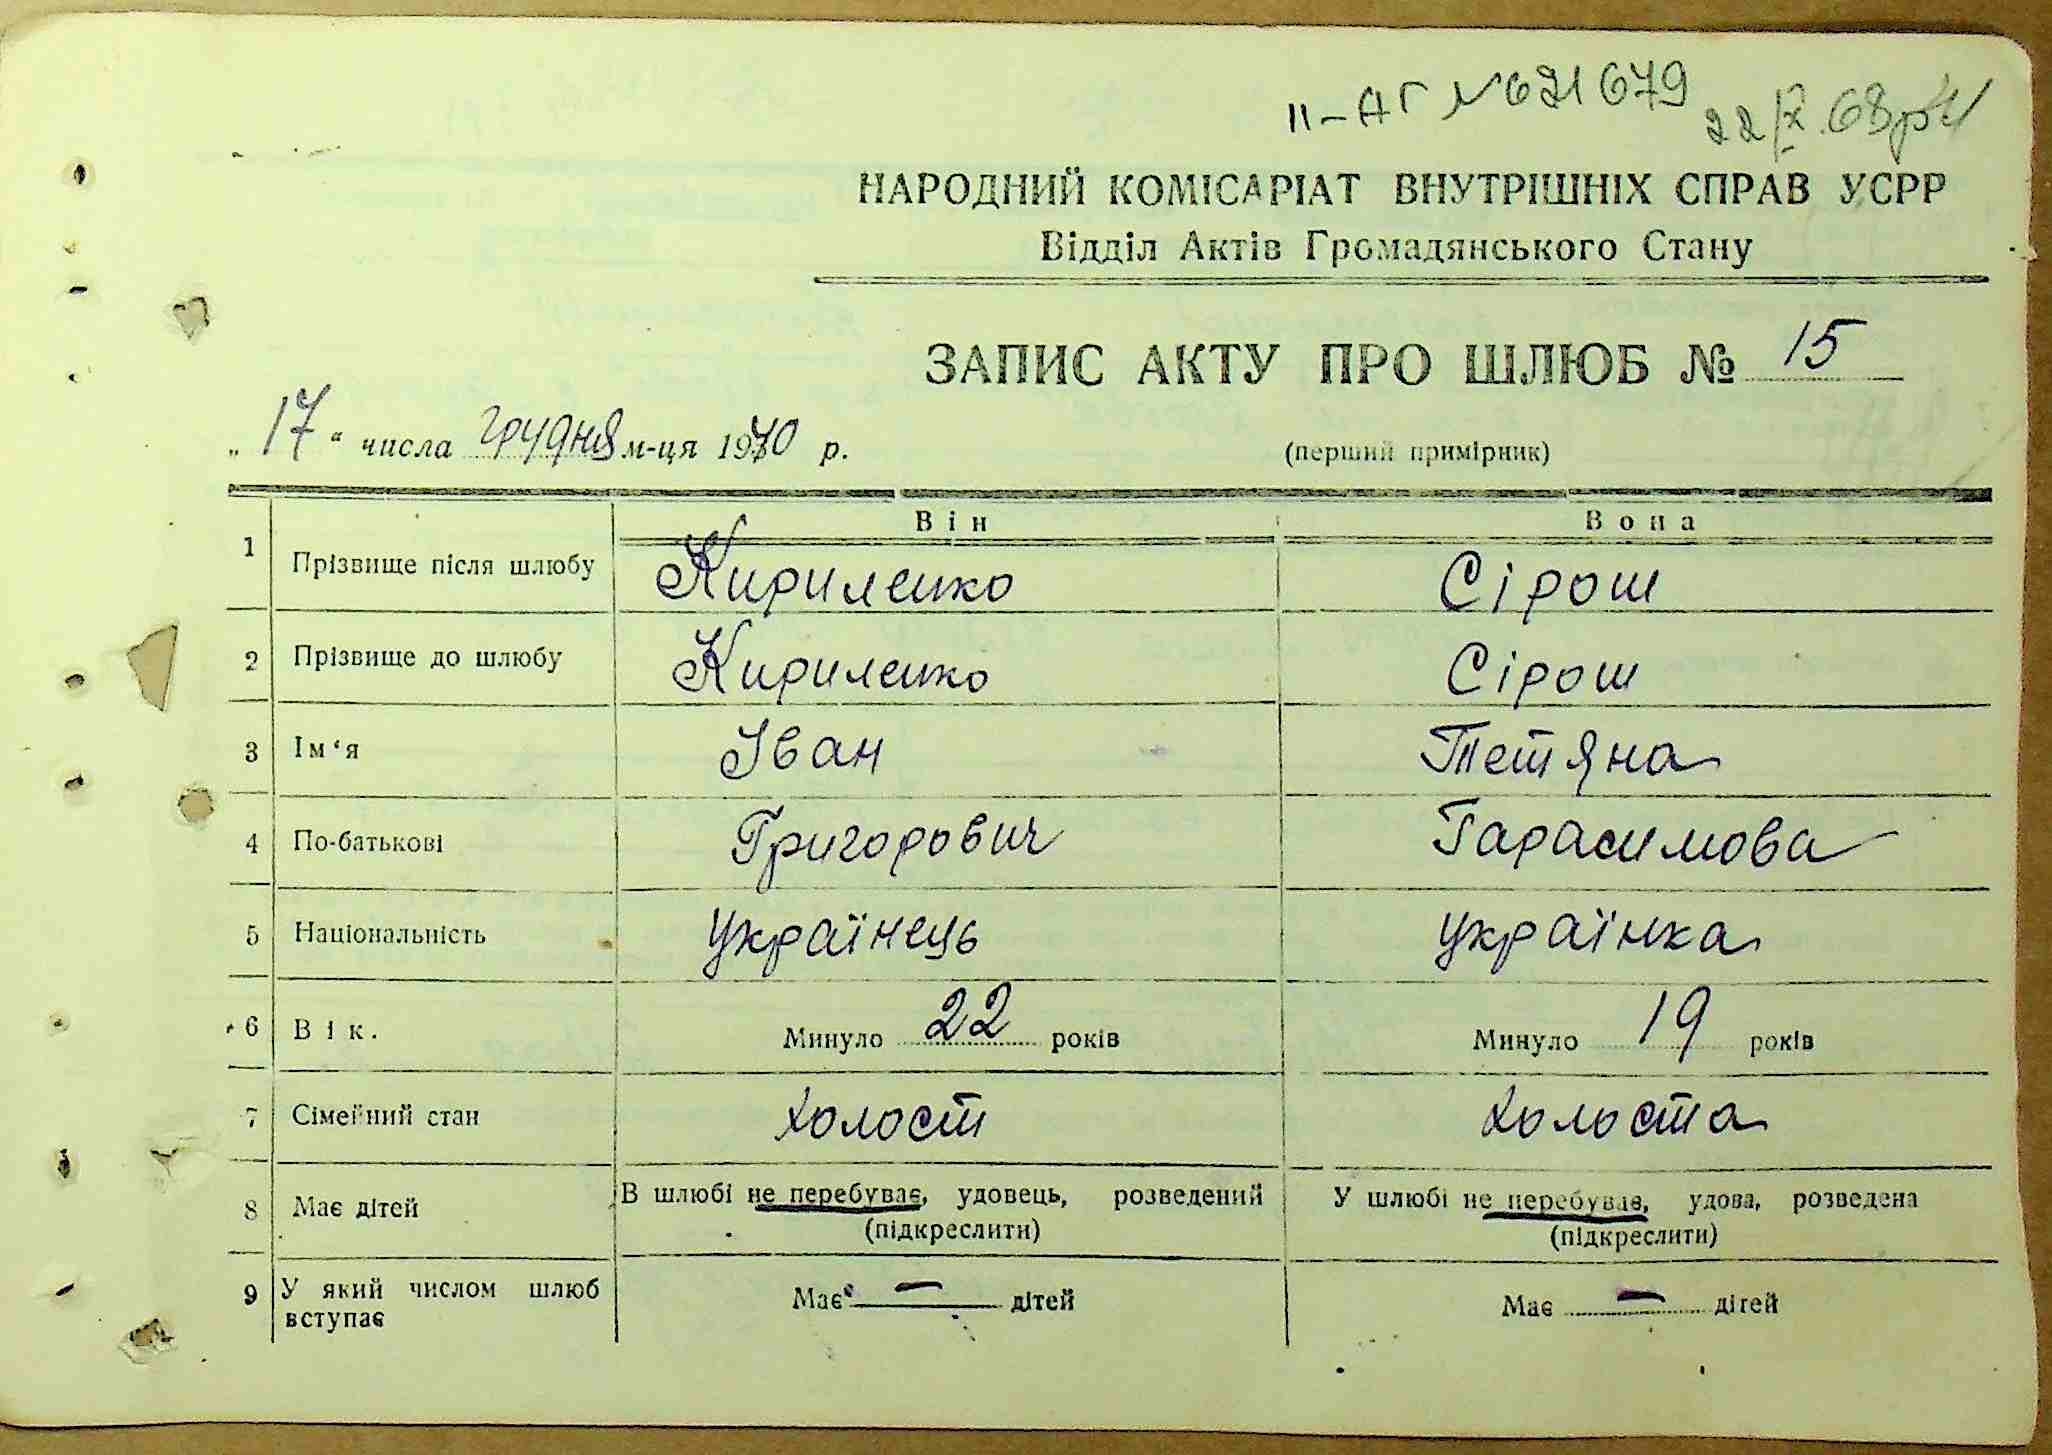 II-АГ №621679
22/X.68р
НАРОДНИЙ КОМІСАРІАТ ВНУТРІШНІХ СПРАВ УСРР
Відділ Актів Громадянського Стану
ЗАПИС АКТУ ПРО ШЛЮБ № 15
„17“ числа грудня м-ця 1940 р.
(перший примірник)
Він Вона
1 Прізвище після шлюбу Кириленко Сірош
2 Прізвище до шлюбу Кириленко Сірош
3 Ім‘я Іван Тетяна
4 По-батькові Григорович Гарасимова
5 Національність Українець Українка
6 Вік. Минуло 22 років Минуло 19 років
7 Сімейний стан холост холоста
8 Має дітей В шлюбі не перебуває, удовець, розведений У шлюбі не перебуває, удова, розведена
(підкреслити) (підкреслити)
9 У який числом шлюб вступає Має — дітей Має — дітей